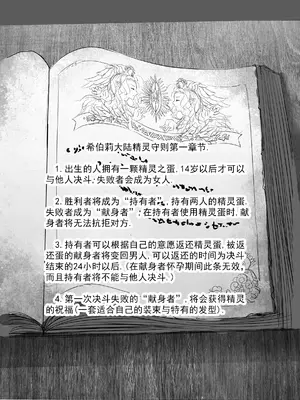 希伯莉大陆精灵守则第一章节.
1.出生的人拥有一颗精灵之蛋.14岁以后才可以
与他人决斗.失败者会成为女人.
2.胜利者将成为“持有者”.持有两人的精灵蛋.
失败者成为“献身者”:在持有者使用精灵蛋时.献
身者将无法抗拒对方.
3.持有者可以根据自己的意愿返还精灵蛋.被返
还蛋的献身者将变回男人.可以返还的时间为决斗
结束的24小时以后.(在献身者怀孕期间此条无效.
而且持有者将不能与他人决斗.)
4.第一次决斗失败的“献身者”.将会获得精灵
的祝福(一套适合自己的装束与特有的发型).